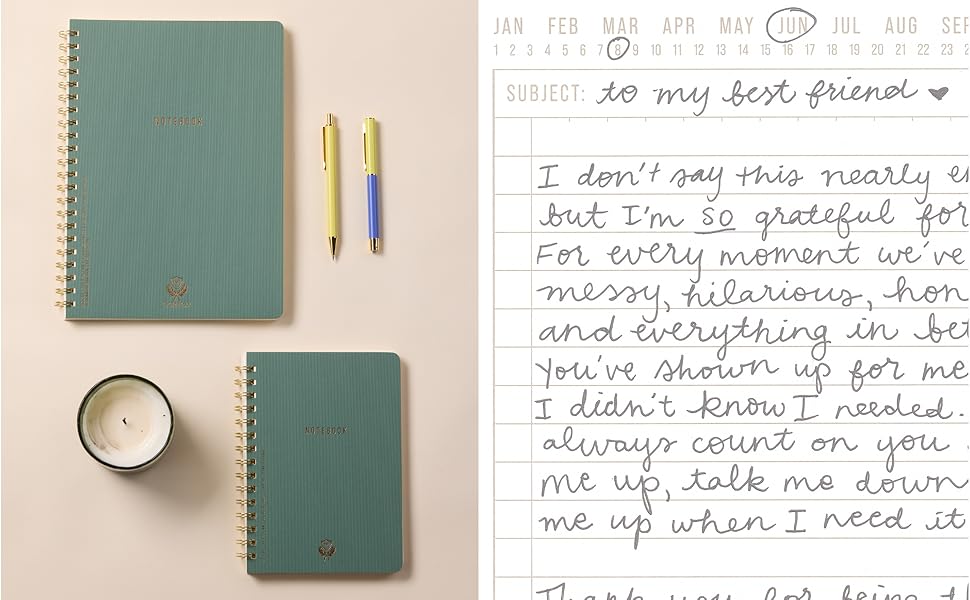 NOTEBOOK
NOTEBOOK
JAN FEB MAR APR MAY JUN JUL AUG SEP
1 2 3 4 5 6 7 8 9 10 11 12 13 14 15 16 17 18 19 20 21 22 23
SUBJECT: to my best friend
I don't say this nearly
but I'm so grateful for
For every moment we've
messy, hilarious, hon
and everything in bet
You've shown up for me
I didn't know I needed.
always count on you
me up, talk me down
me up when I need it
Thank you for being th